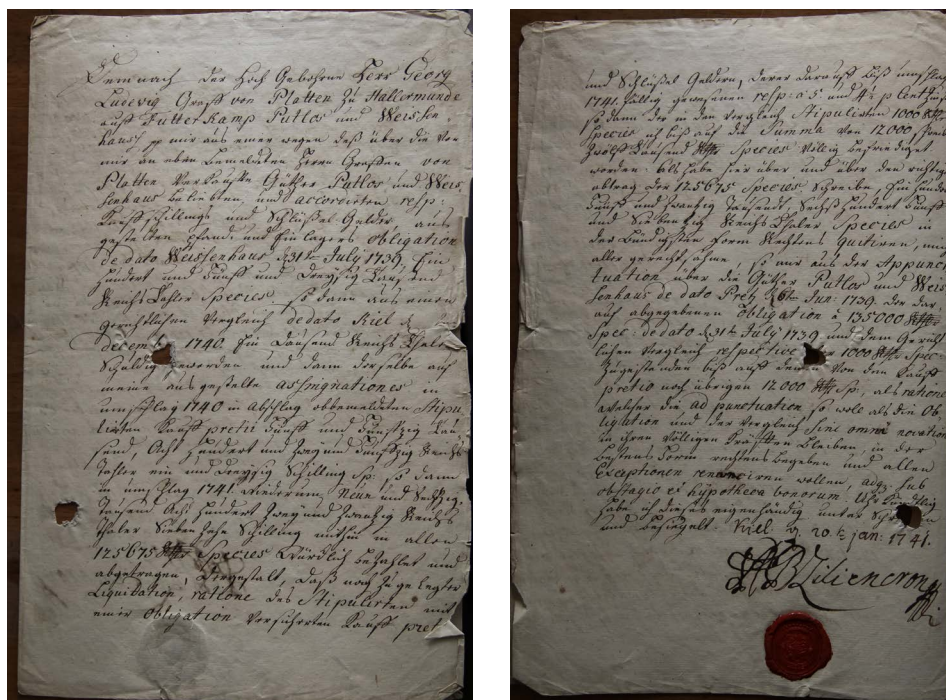 Demnach der Hoch Gebohrne Herr Georg
Ludewig Graff von Platten zu Hallermunde
auff Futterkamp Putlos und Weissen
hauss mir aus einer wegen deß über die von
mir an eben bemeldten Herrn Graffen von
Platten verkauffte Güther Putlos und Weis
senhaus beliebten, und accordirten resp:
Kauffschillings und Schlüßel Gelder aus
gestelten pfand und Einlagers Obligation
de dato Weissenhaus d 31t July 1739. Ein
Hundert und Fünff und Dreyßig Tausend
Reichs Thaler Species so dann aus einem
gerichtlichen Vergleich de dato Kiel d
decemb 1740. Ein Tausend Reichs Thaler
Schuldig geworden und dann derselbe auf
meine ausgestelte assignationes in
umschlag 1740 in Abschlag obbemeldeten Stipu
lirten Kauff pretii Fünff und Funffzig Tau
send, Acht Hundert und Zwey und Funffzig Reichs
Thaler ein und Dreyßig Schilling Sp: so dann
in umschlag 1741. wiederum Neun und Sechzig
Tausend Acht Hundert Zwey und Zwanzig Reichs
Thaler Siebenzehn Schilling mithin in allem
125675 Species würcklich bezahlet und
abgetragen, dergestalt, daß nach zugelegter
Liquidation, ratione des Stipulirten mit
einer Obligation versicherten Kauff pret
und Schlüßel Geldern, derer darauff biß umschlag
1741. fällig gewesenen resp: a 5 und 4½ p Cent
so dann der in dem Vergleich Stipulirten 1000
Species biß auf die Summa von 12000
Zwölff Tausend Species völlig befriediget
worden: Als habe hier über und über den richtigen
abtrag der 125675 Species Schreibe, Ein Hundert
Fünff und Zwanzig Tausendt, Sechs Hundert Fünff
und Siebenzig Reichs Thaler Species in
der bündigsten Form Rechtens quitiren, mich
aller gerechtsahme, so mir aus der Appunc
tuation über die Güther Putlos und Weis
senhaus de dato Pretz d 6t Jun: 1739. der dar
auf abgegebenen Obligation a 135000
Spec: de dato d 31t July 1739 und dem Gericht
lichen Vergleich respective 1000 Spec
zugestanden biß auf den von dem Kauff
pretio noch übrigen 12000 Sp:, als ratione
welcher die ad punctuation so woll als die Ob
ligation und der Vergleich sine omni novatione
in ihren völligen Kräfften bleiben in der
bestens Form rechtens begeben und allen
Exceptionen renunciren wollen,
obstagio et hypotheca bonorum. Uhrkundtlich
habe ich dieses eigenhändig unter Schrieben
und besiegelt. Kiel d 20t jan: 1741.
Liliencron